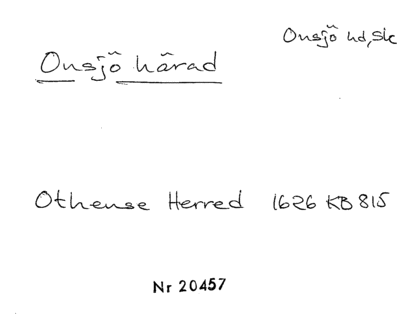 Onsjö hd, Sk
Onsjö härad
Othense Herred 1626 KB 815
Nr 20457